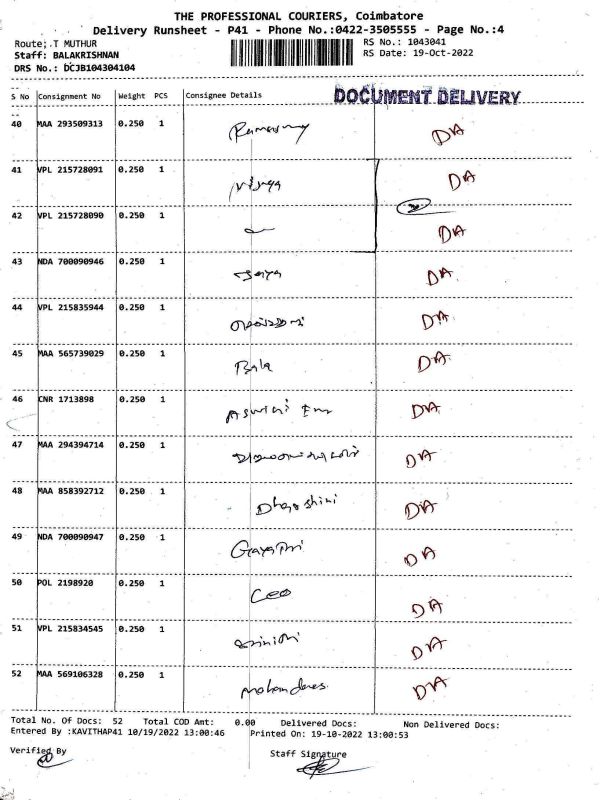 THE PROFESSIONAL COURIERS, Coimbatore
Delivery Runsheet - P41 - Phone No.:0422-3505555 - Page No.:4
Route: T MUTHUR
RS No.: 1043041
Staff: BALAKRISHNAN
RS Date: 19-Oct-2022
DRS No.: DCJB104304104
S No Consignment No Weight PCS Consignee Details DOCUMENT DELIVERY
40 MAA 293509313 0.250 1 DA
41 VPL 215728091 0.250 1 Vijaya DA
42 VPL 215728090 0.250 1 DA
43 NDA 700090946 0.250 1 DA
44 VPL 215835944 0.250 1 DA
45 MAA 565739029 0.250 1 Bala DA
46 CNR 1713898 0.250 1 DA
47 MAA 294394714 0.250 1 DA
48 MAA 858392712 0.250 1 Dharshini DA
49 NDA 700090947 0.250 1 Gayathri DA
50 POL 2198920 0.250 1 Ceo DA
51 VPL 215834545 0.250 1 DA
52 MAA 569106328 0.250 1 DA
Total No. Of Docs: 52 Total COD Amt: 0.00 Delivered Docs: Non Delivered Docs:
Entered By :KAVITHAP41 10/19/2022 13:00:46 Printed On: 19-10-2022 13:00:53
Verified By
Staff Signature